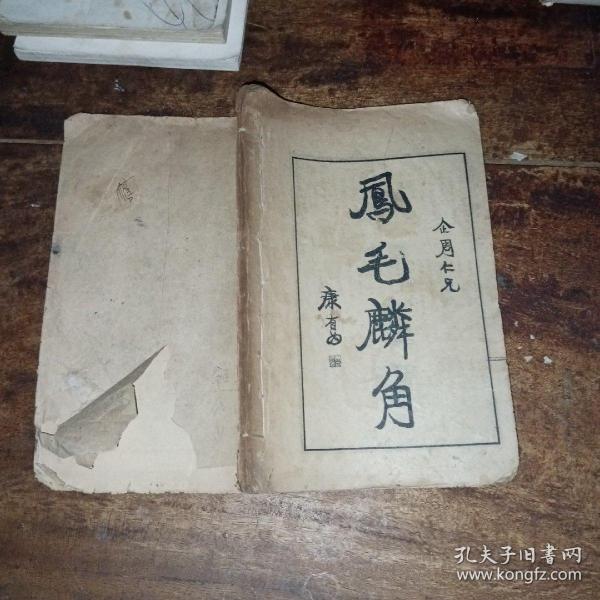 企周仁兄
鳳毛麟角
康有為
孔夫子旧书网
www.kongfz.com